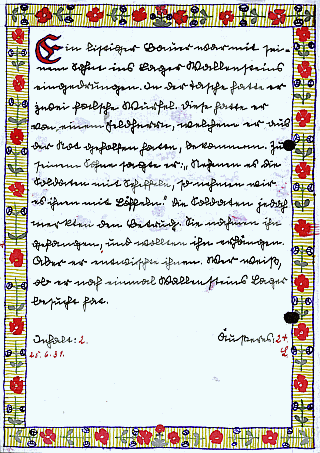 Ein listiger Bauer war mit sei-
nem Sohn ins Lager Wallensteins
eingedrungen. In der Tasche hatte er
zwei falsche Würfel. Diese hatte er
von einem Feldherrn, welchem er aus
der Not geholfen hatte, bekommen. Zu
seinem Sohne sagte er: „Nehmen es die
Soldaten mit Scheffeln, so nehmen wir
es ihnen mit Löffeln.“ Die Soldaten jedoch
merkten den Betrug. Sie nahmen ihn
gefangen, und wollten ihn erhängen.
Aber er entwischte ihnen. Wer weiß,
ob er noch einmal Wallensteins Lager
besucht hat.
Inhalt: 2. Äusseres: 2+
25. 6. 31.